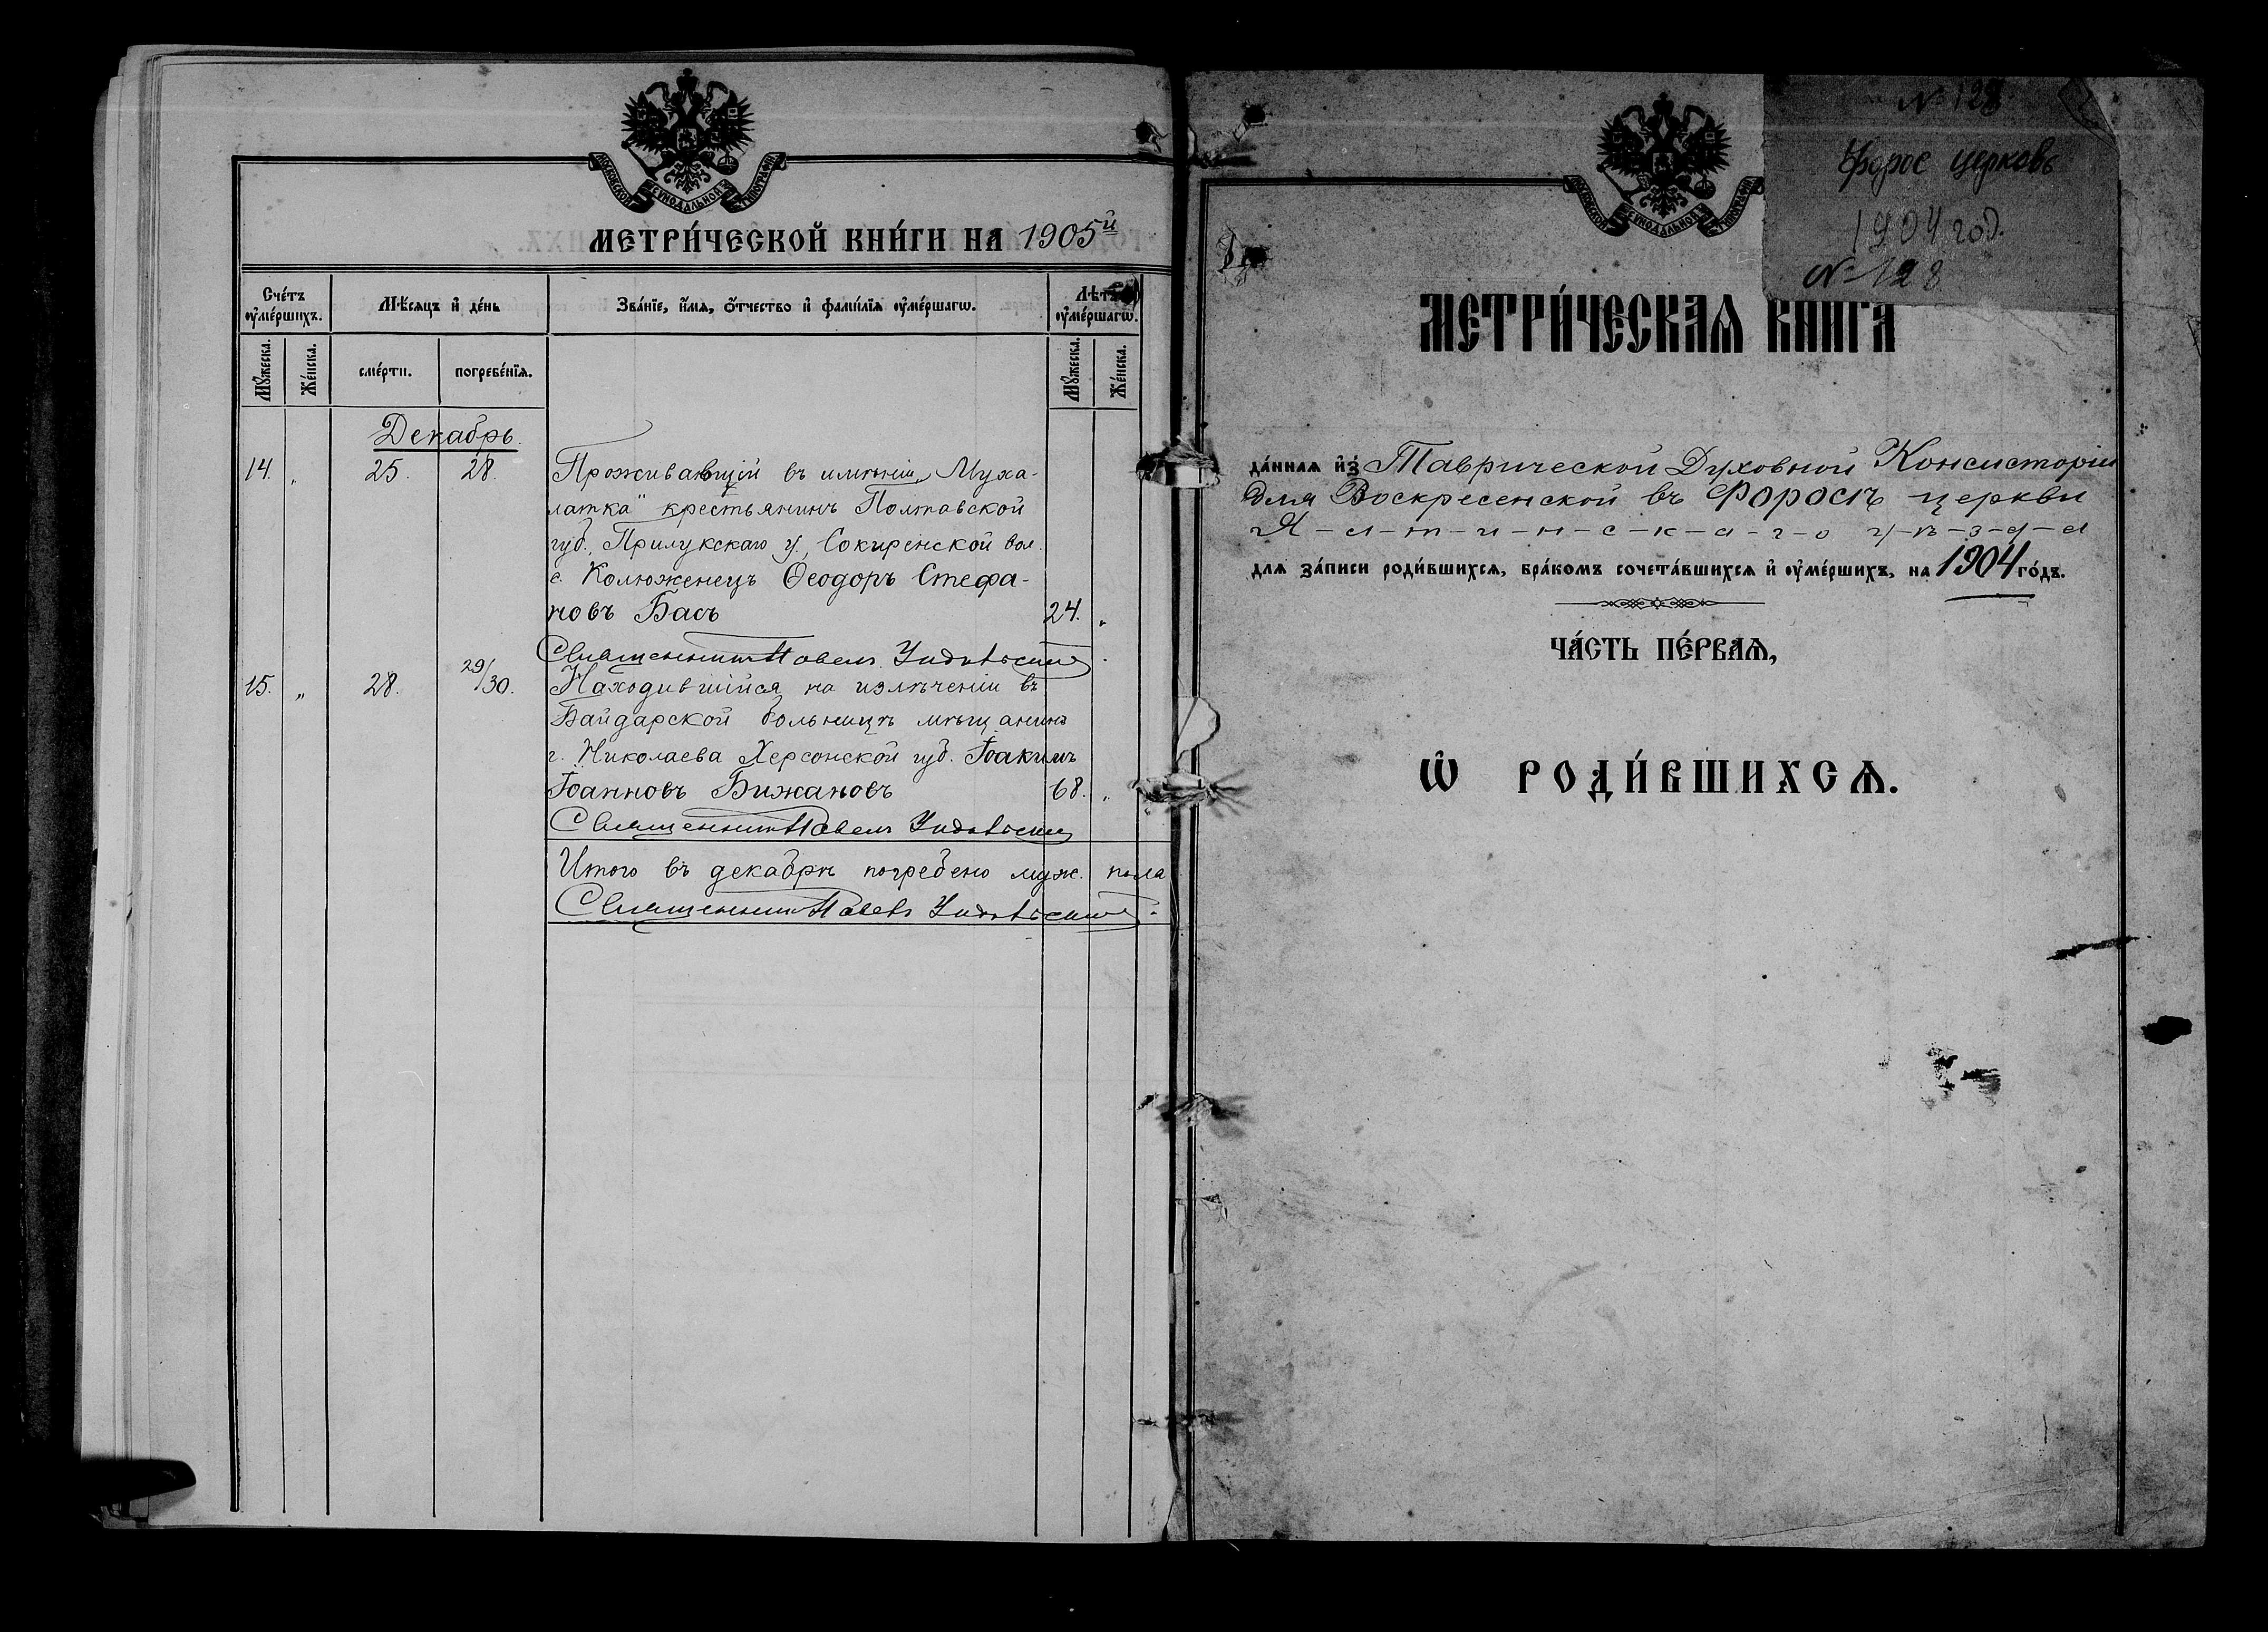 МОСКОВСКОЙ СУНОДАЛЬНОЙ ТИПОГРАФІИ
МЕТРИ́ЧЕСКОЙ КНИ́ГИ НА 1905й
Сче́тъ ᲂу҆ме́ршихъ.
Мѣ́сяцъ и҆ де́нь
Зва́нїе, и҆́мя, ѻ҆́тчество и҆ фами́лїя ᲂу҆ме́ршагѡ.
Лѣтъ ᲂу҆ме́ршагѡ.
Мꙋ́жеска.
Же́нска.
сме́рти.
погребе́нїя.
Мꙋ́жеска.
Же́нска.
Декабрь.
14. „ 25. 28. Проживающій въ имѣніи „Муха-
латка" крестьянинъ Полтавской
губ., Прилукскаго у., Сокиренской вол.
с. Колюженецъ Ѳеодоръ Стефа-
новъ Басъ 24. „
Священникъ Павелъ
15. „ 28. 29/30. Находившійся на излѣченіи въ
Байдарской больницѣ мѣщанинъ
г. Николаева Херсонской губ. Іоакимъ
Іоанновъ Бижановъ 68. „
Священникъ Павелъ
Итого въ декабрѣ погребено муж. пола
Священникъ Павелъ
№ 128
Форос церковь
1904 год.
№ 128
МОСКОВСКОЙ СУНОДАЛЬНОЙ ТИПОГРАФІИ
МЕТРИ́ЧЕСКАѦ КНИГА
да́нная и҆з̾ Таврической Духовной Консисторіи
для Воскресенской въ Форосѣ церкви
Я-л-т-и-н-с-к-а-г-о у-ѣ-з-д-а
для за́писи роди́вшихся, бра́комъ сочета́вшихся и҆ ᲂу҆ме́ршихъ, на 1904 го́дъ.
ЧА́СТЬ ПЕ́РВАѦ,
Ѽ РОДИ́ВШИХСѦ.